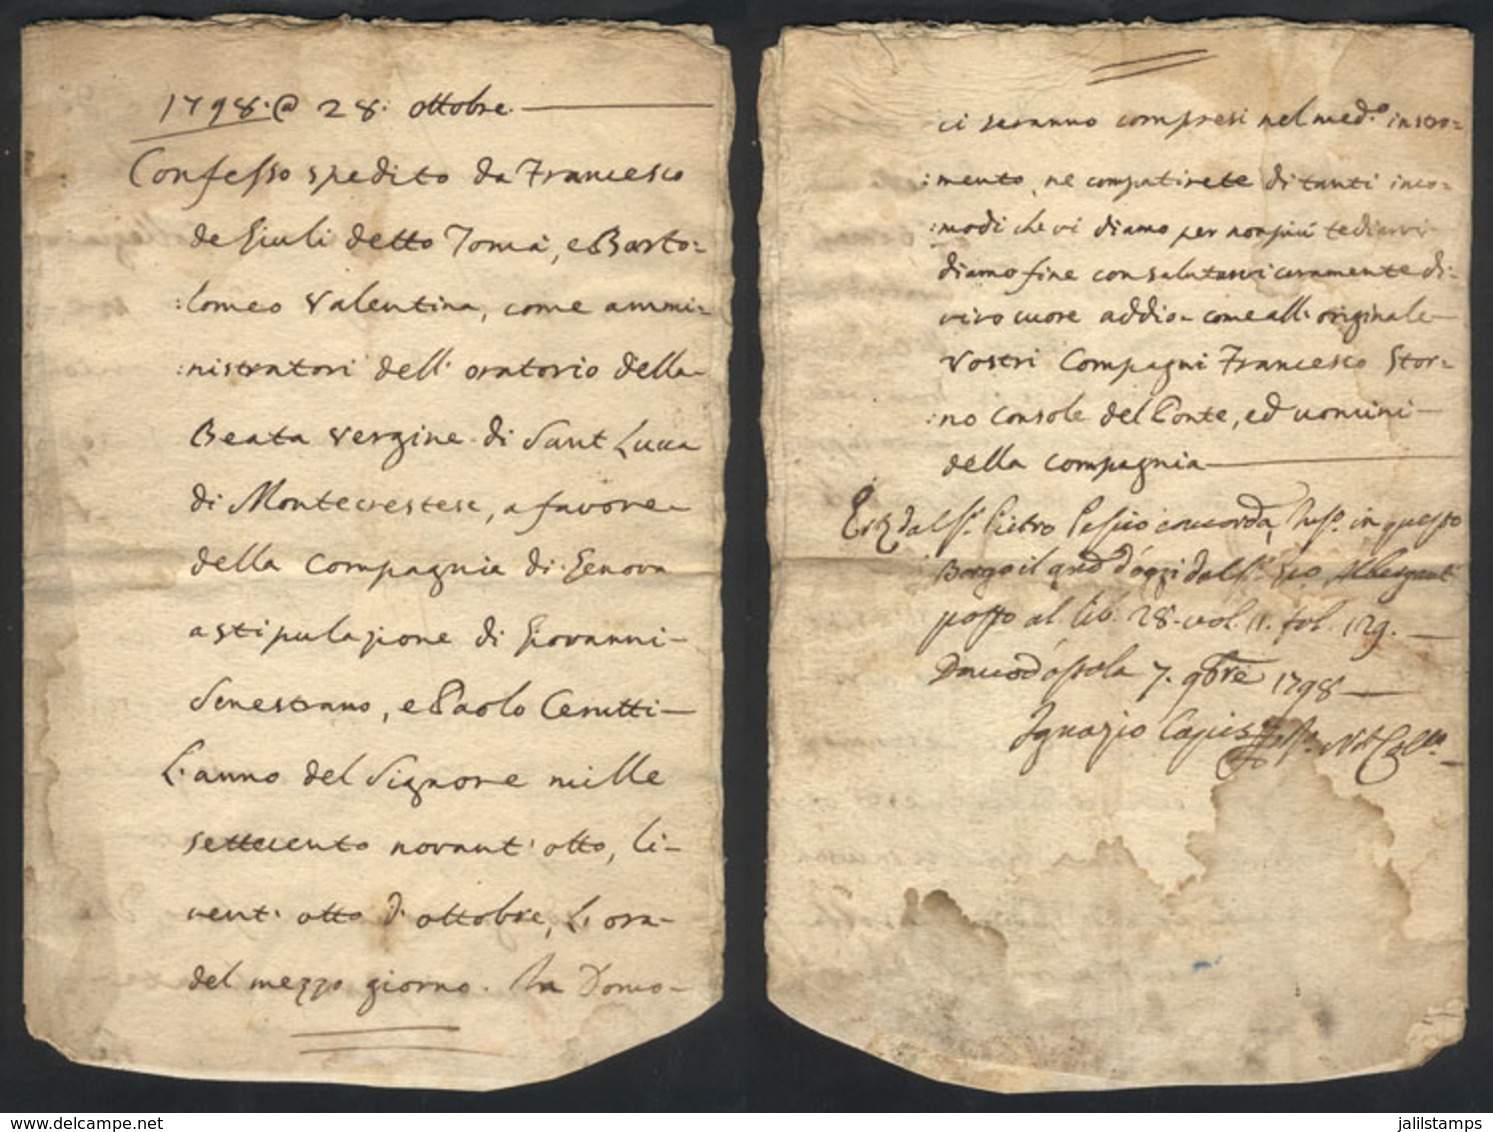 1798. @ 28. ottobre.
Confesso spedito da Francesco
de Giuli detto Tomà, e Barto=
:lomeo Valentina, come ammi=
:nistratori dell' oratorio della
Beata Vergine di Sant Lucca
di Montecrestese, a favore
della Compagnia di Genova
a stipulazione di Giovanni
Senestrano, e Paolo Cerutti
L'anno del Signore mille
settecento novant' otto, li
vent' otto d' ottobre, l' ora
del mezzo giorno. In Domo-
ci seranno compresi nel med.º instro=
:mento, ne compatirete di tanti inco=
:modi che vi diamo per non più tediarvi
diamo fine con salutarvi caramente di
vivo cuore addio - come all' originale
Vostri Compagni Francesco Stor=
:no Console del Ponte, ed uomini
della compagnia
dal Sr. Pietro concorda, in questo
Borgo il d'oggi dal Sr.
posto al lib. 28. vol. 11. fol. 129.
Domodossola 7. 9bre 1798
Ignazio Capis
www.delcampe.net
jalilstamps